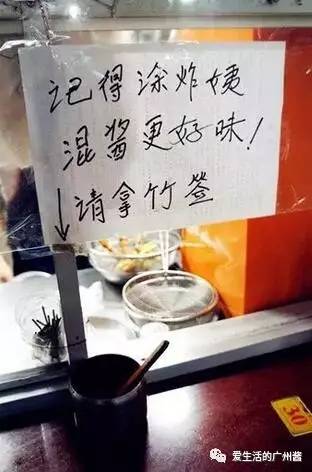 记得涂炸姨
混酱更好味!
请拿竹签
30
爱生活的广州酱